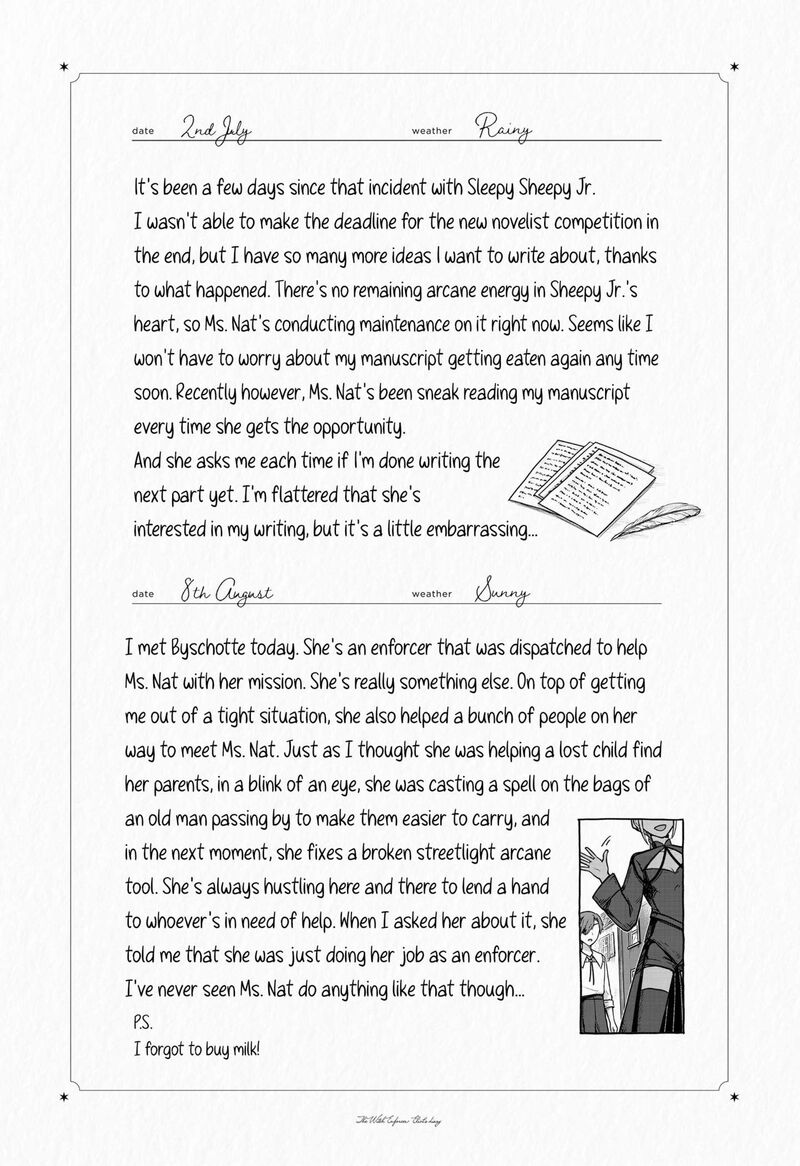 date 2nd July weather Rainy
It's been a few days since that incident with Sleepy Sheepy Jr.
I wasn't able to make the deadline for the new novelist competition in
the end, but I have so many more ideas I want to write about, thanks
to what happened. There's no remaining arcane energy in Sheepy Jr.'s
heart, so Ms. Nat's conducting maintenance on it right now. Seems like I
won't have to worry about my manuscript getting eaten again any time
soon. Recently however, Ms. Nat's been sneak reading my manuscript
every time she gets the opportunity.
And she asks me each time if I'm done writing the
next part yet. I'm flattered that she's
interested in my writing, but it's a little embarrassing...
date 8th August weather Sunny
I met Byschotte today. She's an enforcer that was dispatched to help
Ms. Nat with her mission. She's really something else. On top of getting
me out of a tight situation, she also helped a bunch of people on her
way to meet Ms. Nat. Just as I thought she was helping a lost child find
her parents, in a blink of an eye, she was casting a spell on the bags of
an old man passing by to make them easier to carry, and
in the next moment, she fixes a broken streetlight arcane
tool. She's always hustling here and there to lend a hand
to whoever's in need of help. When I asked her about it, she
told me that she was just doing her job as an enforcer.
I've never seen Ms. Nat do anything like that though...
P.S.
I forgot to buy milk!
The Witch Enforcer diary